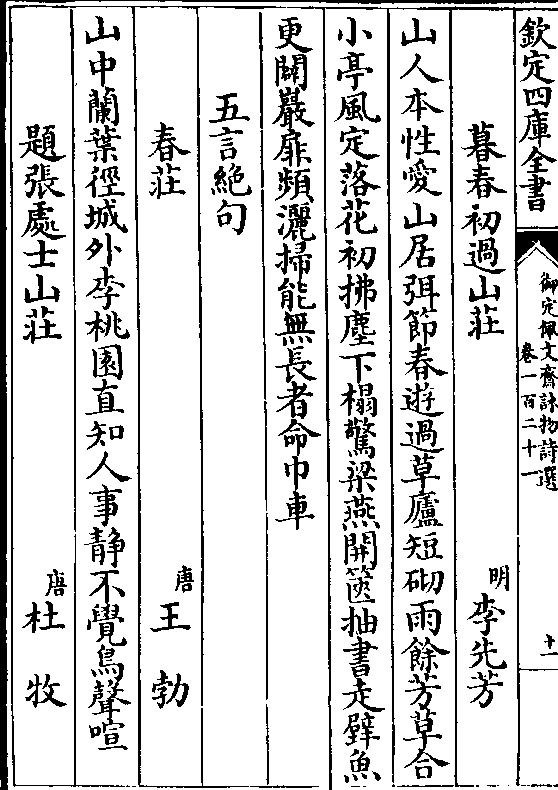 欽定四庫全書
御定佩文齋詠物詩選
卷一百二十一
十一
暮春初過山莊
明李先芳
山人本性愛山居弭節春遊過草廬短砌雨餘芳草合
小亭風定落花初拂塵下榻驚梁燕開篋抽書走壁魚
更闢巖扉頻灑掃能無長者命巾車
五言絶句
春莊
唐王勃
山中蘭葉徑城外李桃園直知人事静不覺鳥聲喧
題張處士山莊
唐杜牧